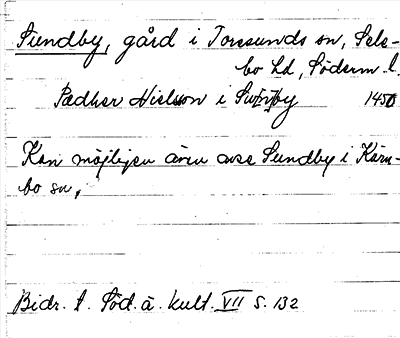 Sundby, gård i Torssunds sn, Sele-
bo hd, Söderm. l.
Pædher Nielsson i Su[n]by 1450
Kan möjligen även avse Sundby i Kärn-
bo sn.
Bidr. t. Söd. ä. kult. VII s. 132